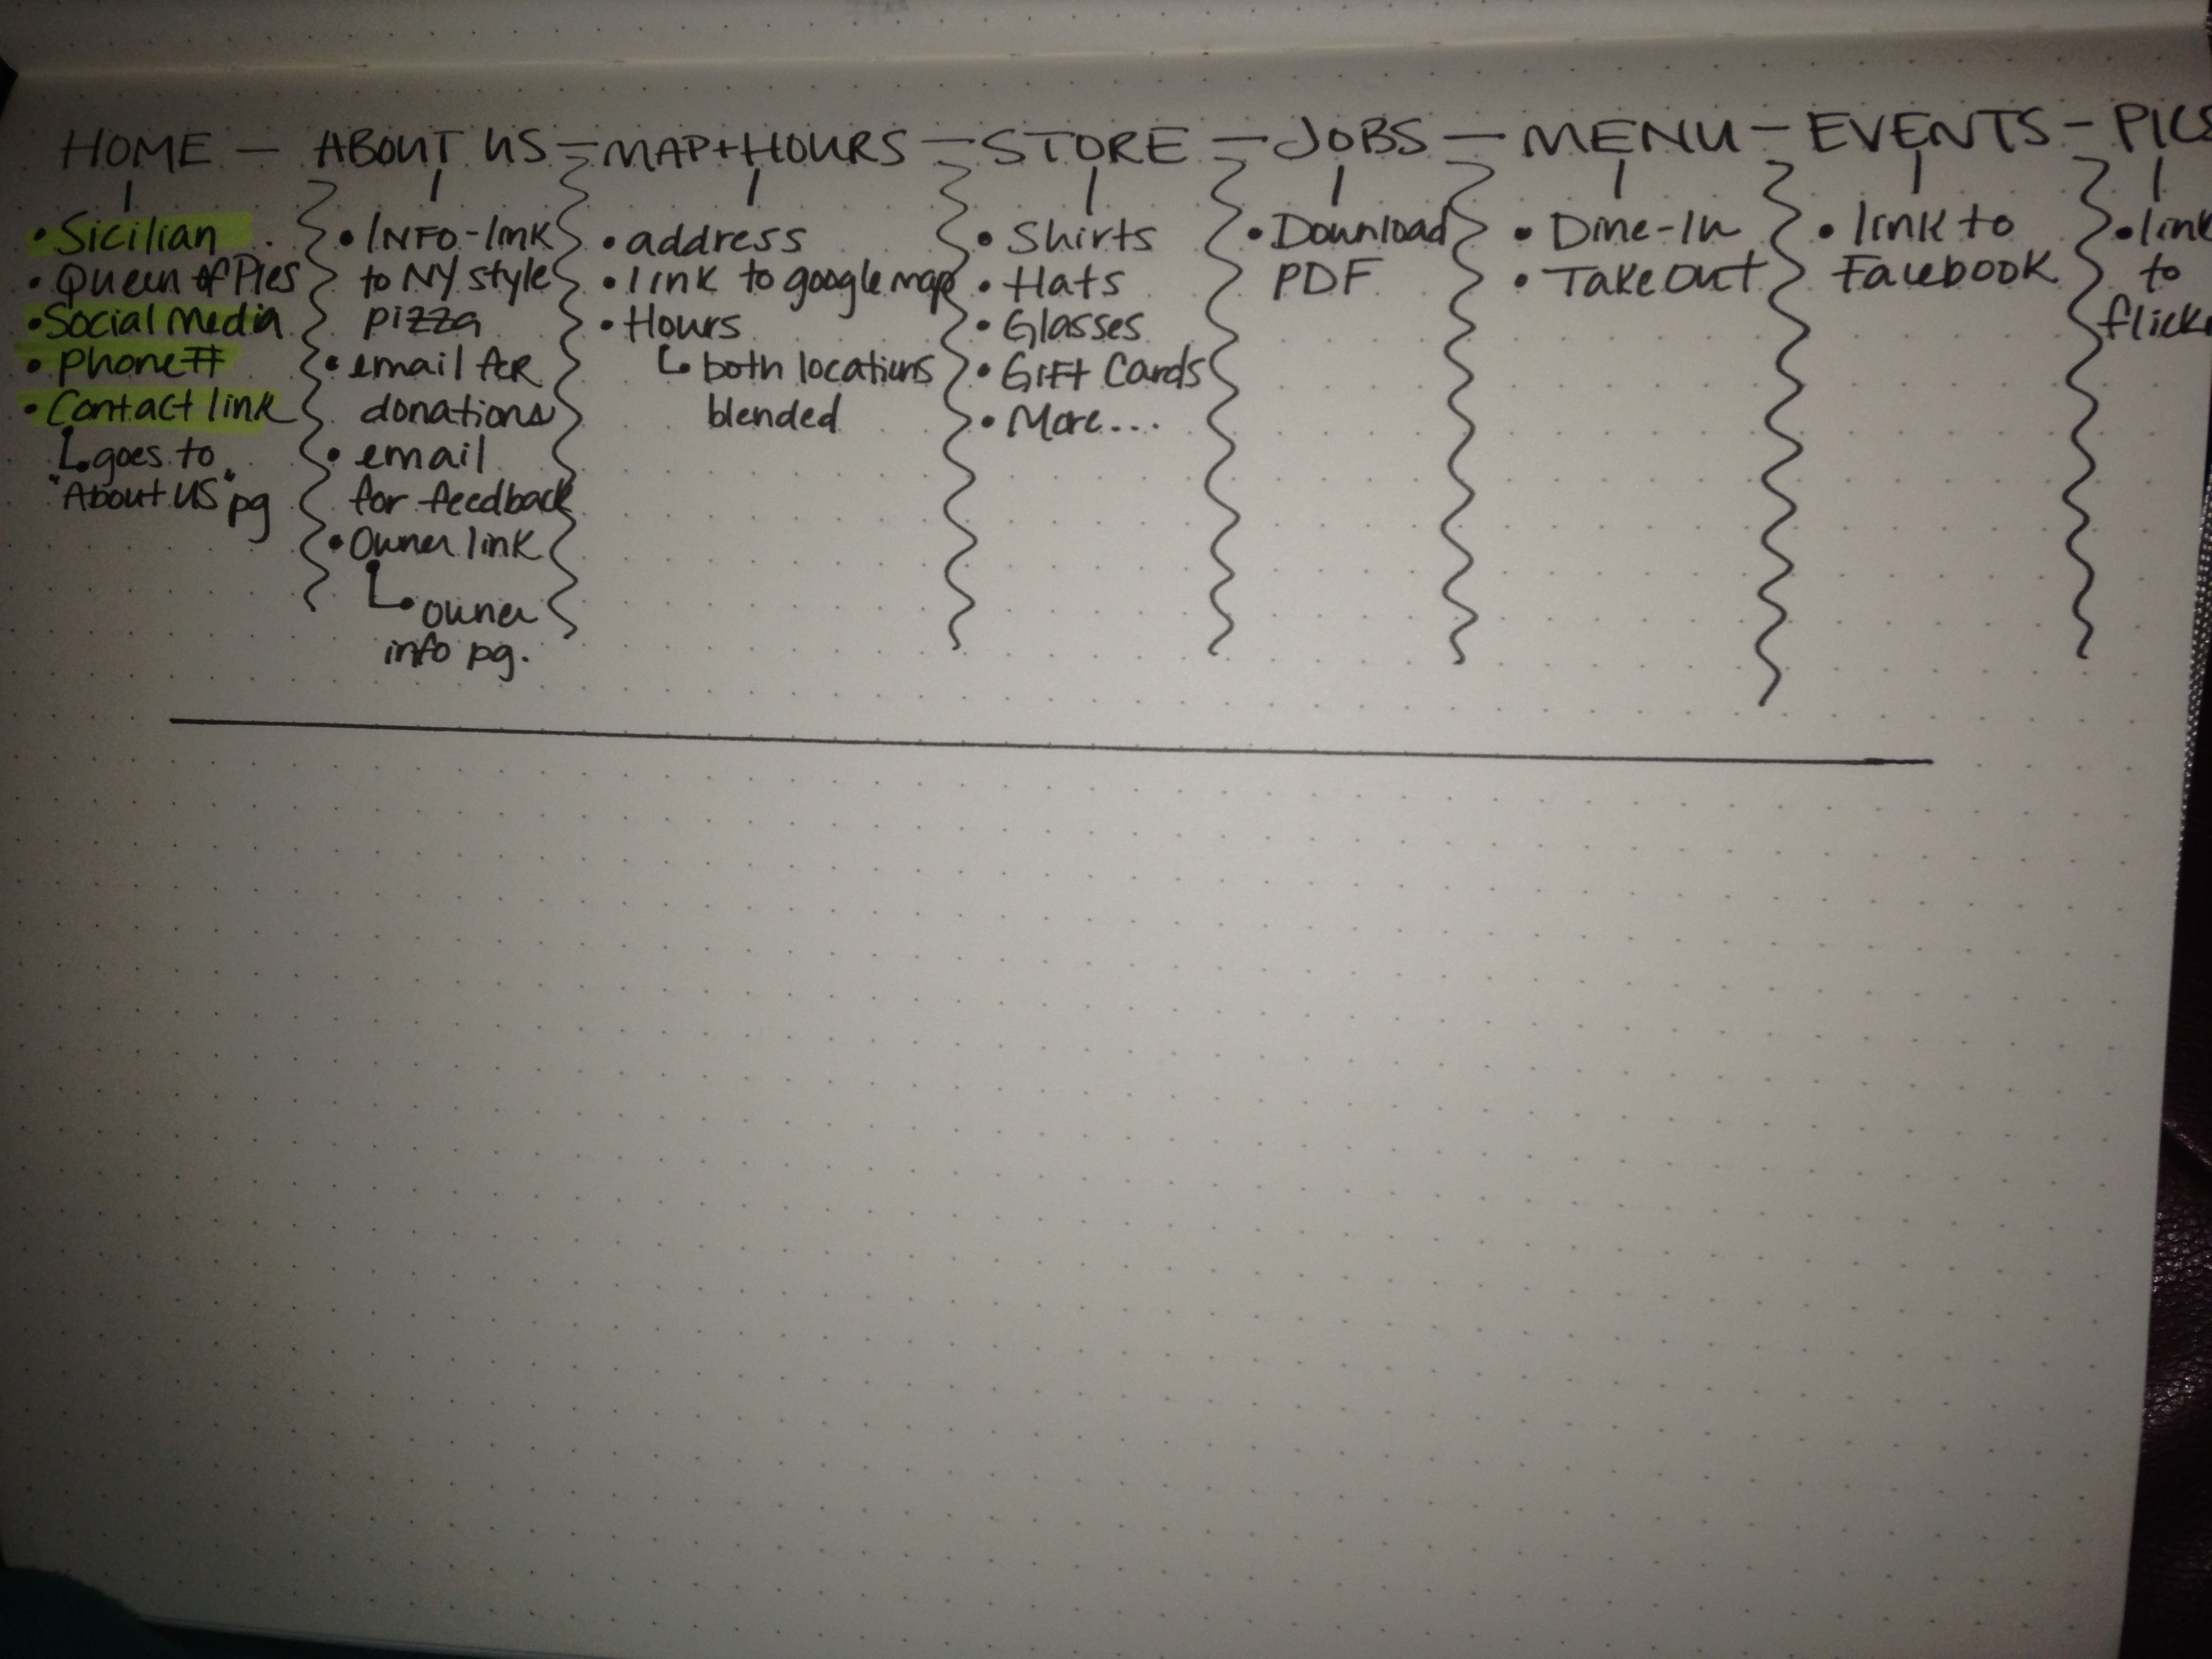 HOME - ABOUT US - MAP+HOURS - STORE - JOBS - MENU - EVENTS - PICS
• Sicilian
• Queen of Pies
• Social media
• Phone #
• Contact link
goes to
"About US" pg
• INFO-link
to NY style
pizza
• email for
donations
• email
for feedback
• Owner link
• owner
info pg.
• address
• link to google map
• Hours
both locations
blended
• Shirts
• Hats
• Glasses
• Gift Cards
• More...
• Download
PDF
• Dine-In
• Take Out
• link to
Facebook
• link
to